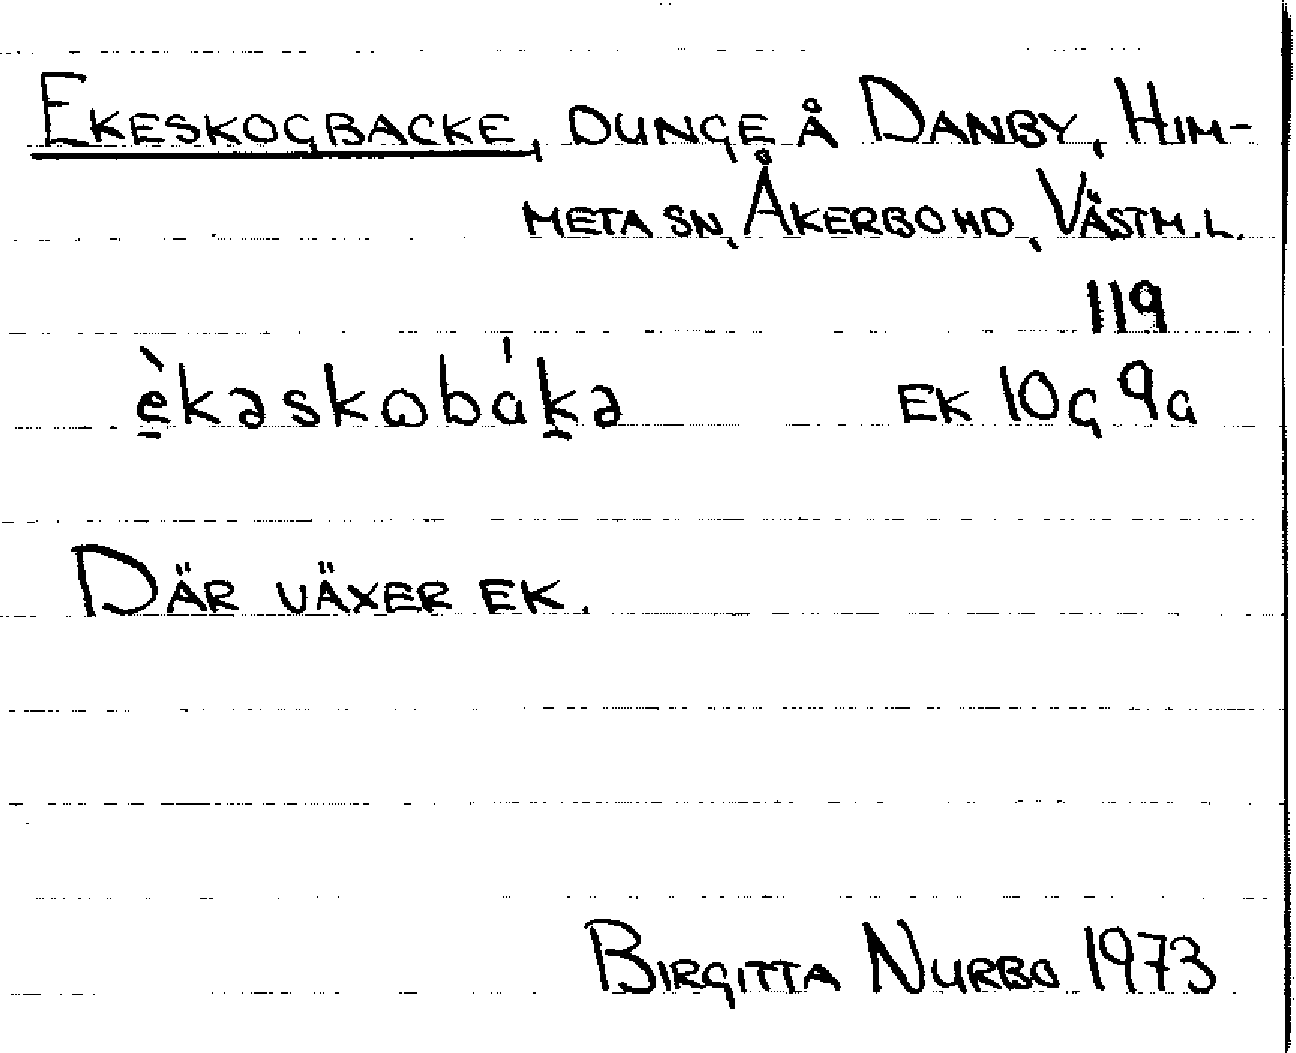 EKESKOGBACKE, DUNGE Å DANBY, HIM-
META SN, ÅKERBO HD, VÄSTM.L.
119
è̠kəskωbák̠ə EK 10G 9a
DÄR VÄXER EK.
BIRGITTA NURBO 1973